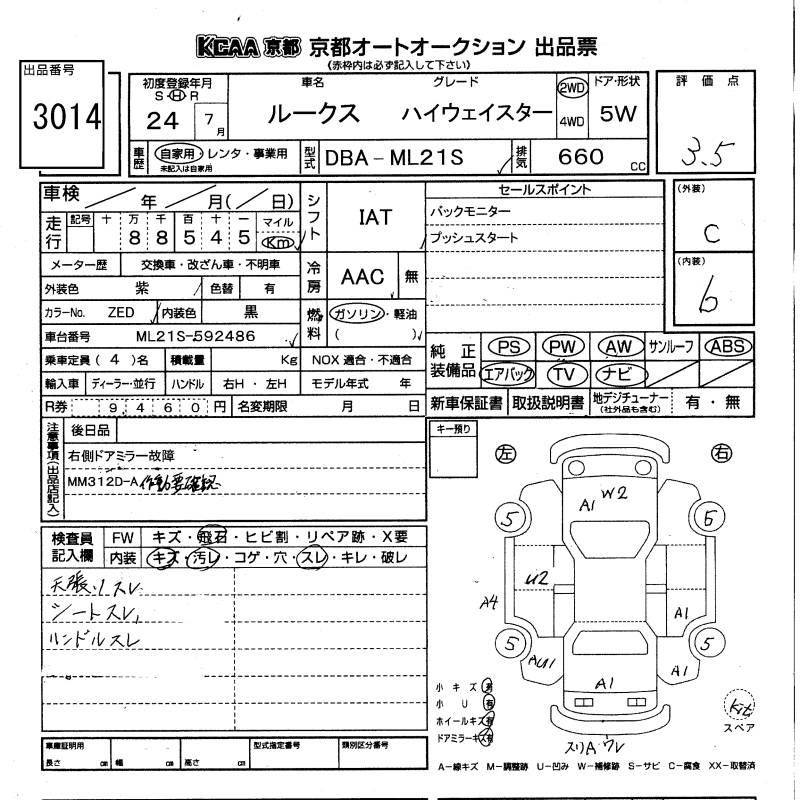 KCAA 京都 京都オートオークション 出品票
(赤枠内は必ず記入して下さい)
出品番号
3014
初度登録年月
S・H・R
24 7月
車名
ルークス
グレード
ハイウェイスター
2WD
4WD
ドア・形状
5W
評価点
3.5
車歴
自家用・レンタ・事業用
未記入は自家用
型式
DBA-ML21S
排気
660 CC
車検 年 月(日)
走行
記号 十 万 千 百 十 一
8 8 5 4 5
マイル
Km
シフト
IAT
セールスポイント
バックモニター
プッシュスタート
(外装)
C
(内装)
b
メーター歴 交換車・改ざん車・不明車
冷房
AAC 無
外装色 紫 色替 有
カラーNo. ZED 内装色 黒
燃料
ガソリン・軽油
( )
車台番号 ML21S-592486
乗車定員(4)名 積載量 Kg NOX 適合・不適合
輸入車 ディーラー・並行 ハンドル 右H・左H モデル年式 年
R券 9,460円 名変期限 月 日
純正装備品
PS PW AW サンルーフ ABS
エアバック TV ナビ
新車保証書 取扱説明書 地デジチューナー(社外品も含む) 有・無
注意事項(出品店記入)
後日品
右側ドアミラー故障
MM312D-A 作動要確認
キー預り
左 右
検査員記入欄
FW キズ・飛石・ヒビ割・リペア跡・X要
内装 キズ・汚レ・コゲ・穴・スレ・キレ・破レ
天張りスレ
シートスレ
ハンドルスレ
A1 W2
5 6
U2
A4 A1
5 5
AU1 A1
A1
小キズ 有
小U 有
ホイールキズ 有
ドアミラーキズ 有
kit
スペア
A-線キズ M-調整跡 U-凹み W-補修跡 S-サビ C-腐食 XX-取替済
車庫証明用
長さ cm 幅 cm 高さ cm
型式指定番号
類別区分番号